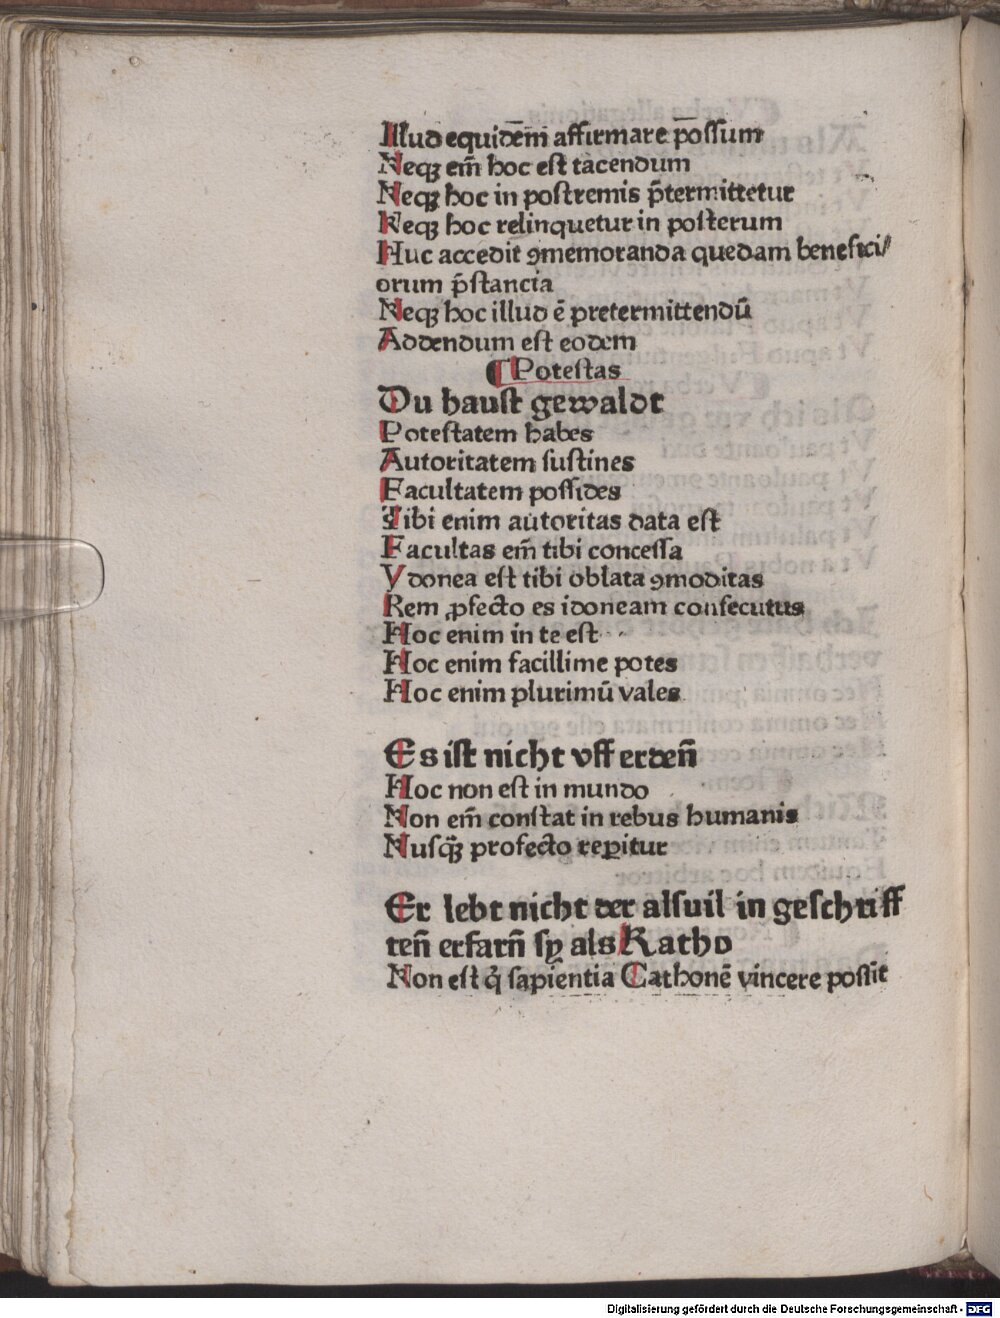 Illud equidē̄m affirmare possum
Neqꝫ em̄ hoc est tacendum
Neqꝫ hoc in postremis p̄termittetur
Neqꝫ hoc relinquetur in posterum
Huc accedit ꝯmemoranda quedam benefici//
orum p̄stancia
Neqꝫ hoc illud ē pretermittendū
Addendum est eodem
¶ Potestas
Du haust gewaldt
Potestatem habes
Autoritatem sustines
Facultatem possides
Tibi enim autoritas data est
Facultas em̄ tibi concessa
Ydonea est tibi oblata ꝯmoditas
Rem ꝓfecto es idoneam consecutus
Hoc enim in te est
Hoc enim facillime potes
Hoc enim plurimū vales
Es ist nicht vff erden̄
Hoc non est in mundo
Non em̄ constat in rebus humanis
Nusq̄ꝫ profecto reꝑitur
Er lebt nicht der alsuil in geschriff
ten̄ erfarn̄ sy als Katho
Non est q̇ sapientia Cathonē vincere possit
Digitalisierung gefördert durch die Deutsche Forschungsgemeinschaft - DFG